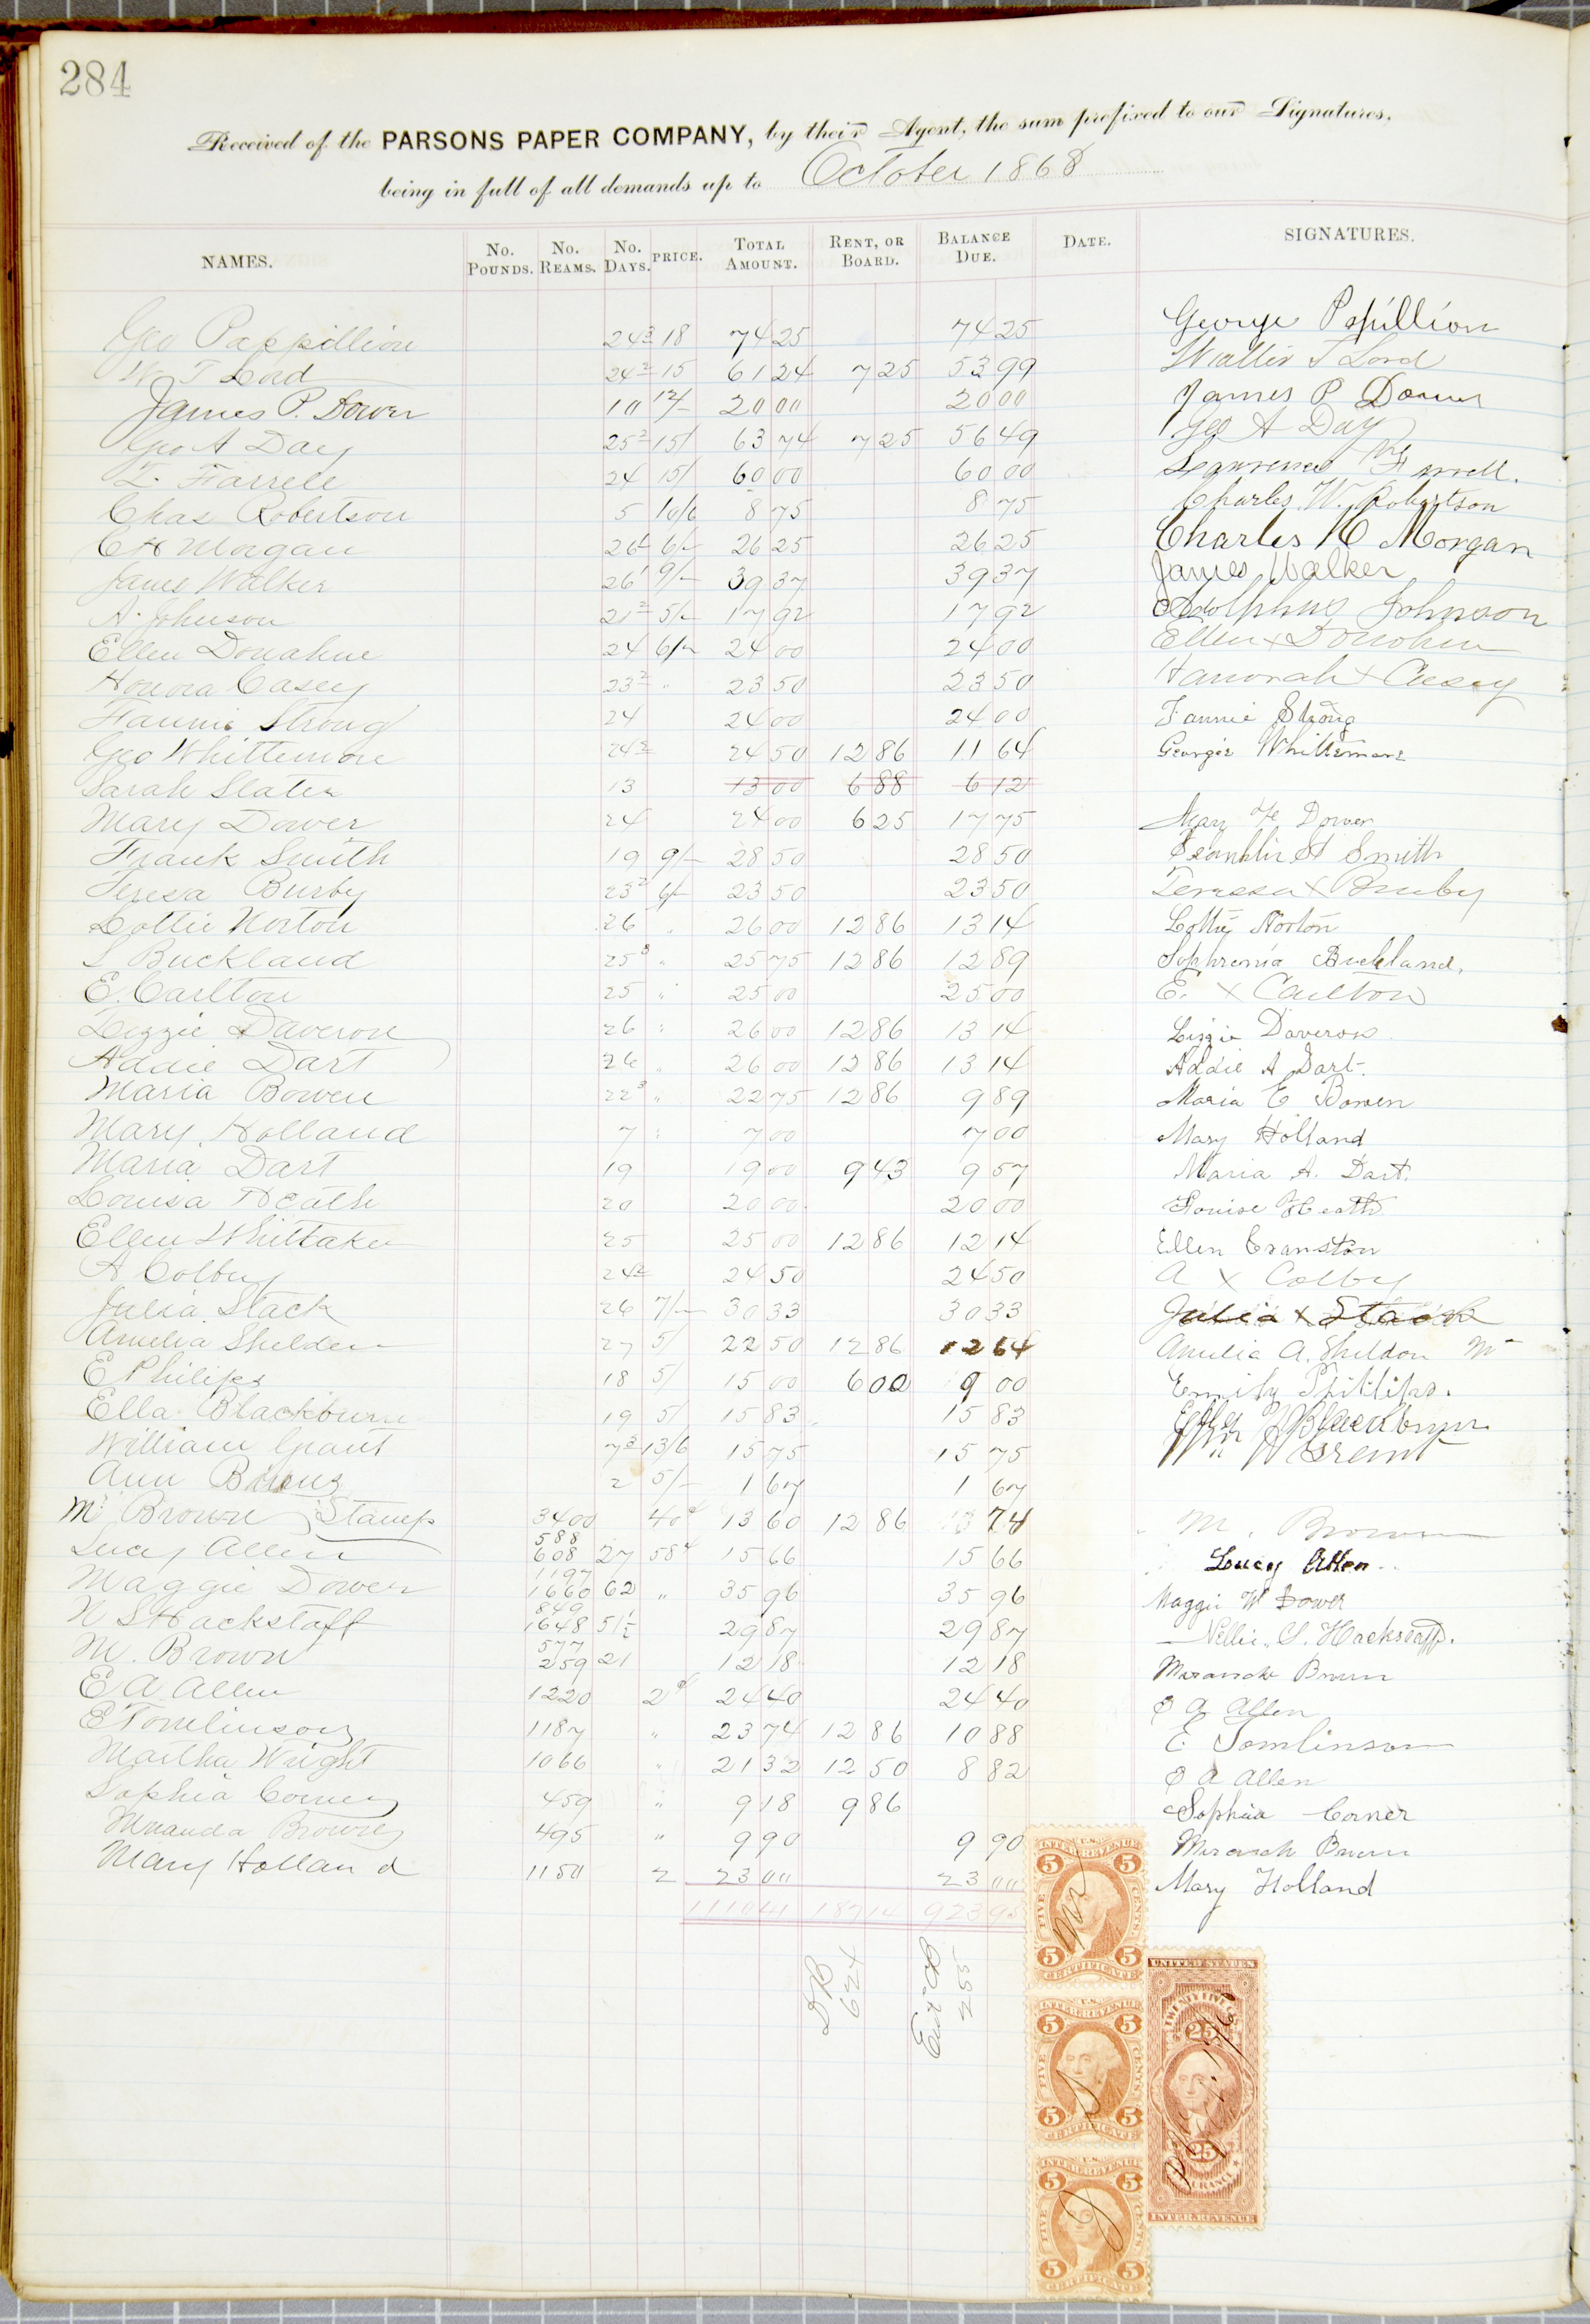 284
Received of the PARSONS PAPER COMPANY, by their Agent, the sum prefixed to our Signatures,
being in full of all demands up to October 1868
NAMES. No. Pounds. No. Reams. No. Days. PRICE. Total Amount. Rent, or Board. Balance Due. Date. SIGNATURES.
Geo Pappillion 24 3 18 74 25 74 25 George Papillion
W T Lord 24 2 15 61 24 7 25 53 99 Walter T Lord
James P. Dower 10 12/- 20 00 20 00 James P Dower
Geo A Day 25 2 15/ 63 74 7 25 56 49 Geo A Day
L. Farrele 24 15/ 60 00 60 00 Lawrence Farrell.
Chas Robertson 5 10/6 8 75 8 75 Charles W. Robertson
C H Morgan 26 1 6/- 26 25 26 25 Charles H Morgan
James Walker 26 1 9/- 39 37 39 37 James Walker
A. Johnson 21 2 5/- 17 92 17 92 Adolphus Johnson
Ellen Donahue 24 6/- 24 00 24 00 Ellen x Donohue
Honora Casey 23 2 " 23 50 23 50 Hanorah x Casey
Fannie Strong 24 24 00 24 00 Fannie Strong
Geo Whittemore 24 2 24 50 12 86 11 64 George Whittemore
Sarah Slater 13 13 00 6 88 6 12
Mary Dower 24 24 00 6 25 17 75 Mary Dower
Frank Smith 19 9/- 28 50 28 50 Franklin H Smith
Teresa Burby 23 2 6/- 23 50 23 50 Teressa x Burby
Lottie Norton 26 " 26 00 12 86 13 14 Lottie Norton
S Buckland 25 3 " 25 75 12 86 12 89 Sophronia Buckland,
E. Carlton 25 " 25 00 25 00 E. x Carlton
Lizzie Daveron 26 " 26 00 12 86 13 14 Lizzie Daveron
Addie Dart 26 " 26 00 12 86 13 14 Addie A Dart.
Maria Bowen 22 3 " 22 75 12 86 9 89 Maria E Bowen
Mary Holland 7 " 7 00 7 00 Mary Holland
Maria Dart 19 19 00 9 43 9 57 Maria A. Dart.
Louisa Heath 20 20 00 20 00 Louise Heath
Ellen Whittaker 25 25 00 12 86 12 14 Ellen Cranston
A Colby 24 2 24 50 24 50 A x Colby
Julia Stack 26 7/- 30 33 30 33 Julia x Stack
Amelia Shelden 27 5/ 22 50 12 86 12 64 Amelia A. Sheldon
E Philips 18 5/ 15 00 6 00 9 00 Emily Phillips.
Ella Blackburn 19 5/ 15 83 15 83 Ella Blackburn
William Grant 7 3 13/6 15 75 15 75 Wm Grant
Ann Burns 2 5/- 1 67 1 67
M Brown Stamps 3400 40 ¢ 13 60 12 86 74 M. Brown
588
Lucy Allen 608 27 58 ¢ 15 66 15 66 Lucy Allen
1197
Maggie Dower 1660 62 " 35 96 35 96 Maggie W Dower
849
N S Hackstaff 1648 51 1/2 29 87 29 87 Nellie S. Hackstaff.
577
M. Brown 259 21 12 18 12 18 Miranda Brown
E A Allen 1220 2 ¢ 24 40 24 40 E A Allen
E Tomlinson 1187 " 23 74 12 86 10 88 E Tomlinson
Martha Wright 1066 " 21 32 12 50 8 82 E A Allen
Sophia Corner 459 " 9 18 9 86 Sophia Corner
Miranda Brown 495 " 9 90 9 90 Miranda Brown
Mary Holland 1150 2 23 00 23 00 Mary Holland
1110 41 187 14 923 95
624
255
U.S. INTER. REVENUE 5 5 FIVE CENTS 5 5 CERTIFICATE
U.S. INTER. REVENUE 5 5 FIVE CENTS 5 5 CERTIFICATE
INTER. REVENUE 5 5 FIVE CENTS 5 5 CERTIFICATE
UNITED STATES TWENTY FIVE 25 25 INSURANCE INTER. REVENUE